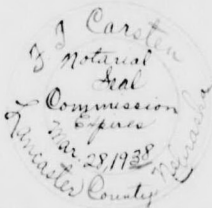 F J Carsten
Notarial
Seal
Commission
Expires
Mar. 28, 1938
Lancaster County Nebraska